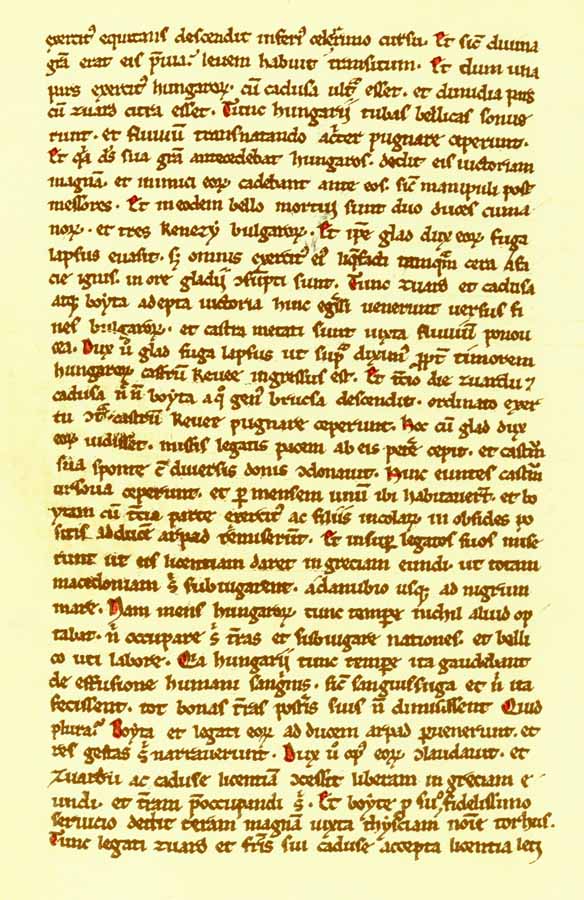 exercit᷒ equitans descendit inferi᷒ celeͬrimo cursu. Et sic̄ diuina
gr̄a erat eis p̄uia. leuem habuit transitum. Et dum una
pars exercit᷒ hungaroꝝ. cū cadusa ult̾ esset. et dimidia pars
cū zuard citra esset. Tunc hungarij tubas bellicas sonue
runt. et fluuiū transnatando acͥter pugnare ceperunt.
Et qͥa ds̄ sua gr̄a antecedebat hungaros. dedit eis uictoriam
magnā. et inimici eoꝝ cadebant ante eos. sic̄ manipuli post
messores. Et in eodem bello mortui sunt duo duces cuma
noꝝ. et tres kenezy bulgaroꝝ. Et ip̄e glad dux eoꝝ fuga
lapsus euasit. sꝫ omnis exercit᷒ ei᷒ liq̄facti tamqͣm cera a fa
cie ignis. in ore gladij ↄsūpti sunt. Tunc zuard et cadusa
atqꝫ boyta adepta uictoria hinc eg̃ssi uenerunt uersus fi
nes bulgaroꝝ. et castra metati sunt iuxta fluuiū ponou
cea. Dux u͛ glad fuga lapsus ut sup̃ dixim᷒ ꝓpt̾ timorem
hungaroꝝ castrū keuee ingressus est. Et t̾cio die zuardu ⁊
cadusa n̄ n̄ boyta a qͦ gen᷒ brucsa descendit. ordinato exer
tu ↄt̾ castrū keuee pugnare ceperunt. Hoc cū glad dux
eoꝝ uidisset. missis legatis pacem ab eis pet̾e cepit. et castrū
sua sponte c̄ diuersis donis ↄdonauit. Hinc euntes castrū
ursoua ceperunt. et ꝑ mensem unū ibi habitauer̄t. et bo
ytam cū t̾cia parte exercit᷒ ac filijs incolaꝝ in obsides po
sitis ad ducē arpad remiserūt. Et insuꝑ legatos suos mise
runt ut eis licentiam daret in greciam eundi. ut totam
macedoniam s̾ subiugarent. a danubio usqꝫ ad nigrum
mare. Nam mens hungaroꝝ tunc tempore nichil aliud op
tabat. n̄ occupare s̾ t̾ras et subiugare nationes. et belli
co uti labore. Qͥa hungarij tunc tempore ita gaudebant
de effusione humani sangͥnis. sic̄ sanguissuga et n̄ ita
fecissent. tot bonas t̾ras post̾is suis n̄ dimisissent Quid
plura? Boyta et legati eoꝝ ad ducem arpad ꝑuenerunt. et
res gestas s̾ narrauerunt. Dux u͛ op᷒ eoꝝ ↄlaudauit. et
zuardu ac caduse licentiā ↄcessit liberam in greciam e
undi. et t̾ram p̄occupandi s̾. Et boyte ꝓ suo fidelissimo
seruicio dedit terram magnā iuxta thysciam noīe torhus.
Tunc legati zuard et fr̄is sui caduse accepta licentia letj